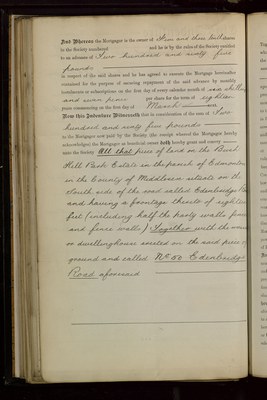 And Whereas the Mortgagor is the owner of Five and three tenth shares
in the Society numbered and he is by the rules of the Society entitled
to an advance of Two hundred and sixty five
pounds
in respect of the said shares and he has agreed to execute the Mortgage hereinafter
contained for the purpose of securing repayment of the said advance by monthly
instalments or subscriptions on the first day of every calendar month of
and seven pence per share for the term of eighteen
years commencing on the first day of March
Now this Indenture Witnesseth that in consideration of the sum of Two
hundred and sixty five pounds
to the Mortgagor now paid by the Society (the receipt whereof the Mortgagor hereby
acknowledges) the Mortgagor as beneficial owner doth hereby grant and convey
unto the Society All that piece of land on the Bush
Hill Park Estate in the parish of Edmonton
in the County of Middlesex situate on the
South side of the road called Edenbridge Road
and having a frontage thereto of eighteen
feet (including half the party walls fences
and fence walls) Together with the messuage
or dwellinghouse erected on the said piece of
ground and called No. 50 Edenbridge
Road aforesaid